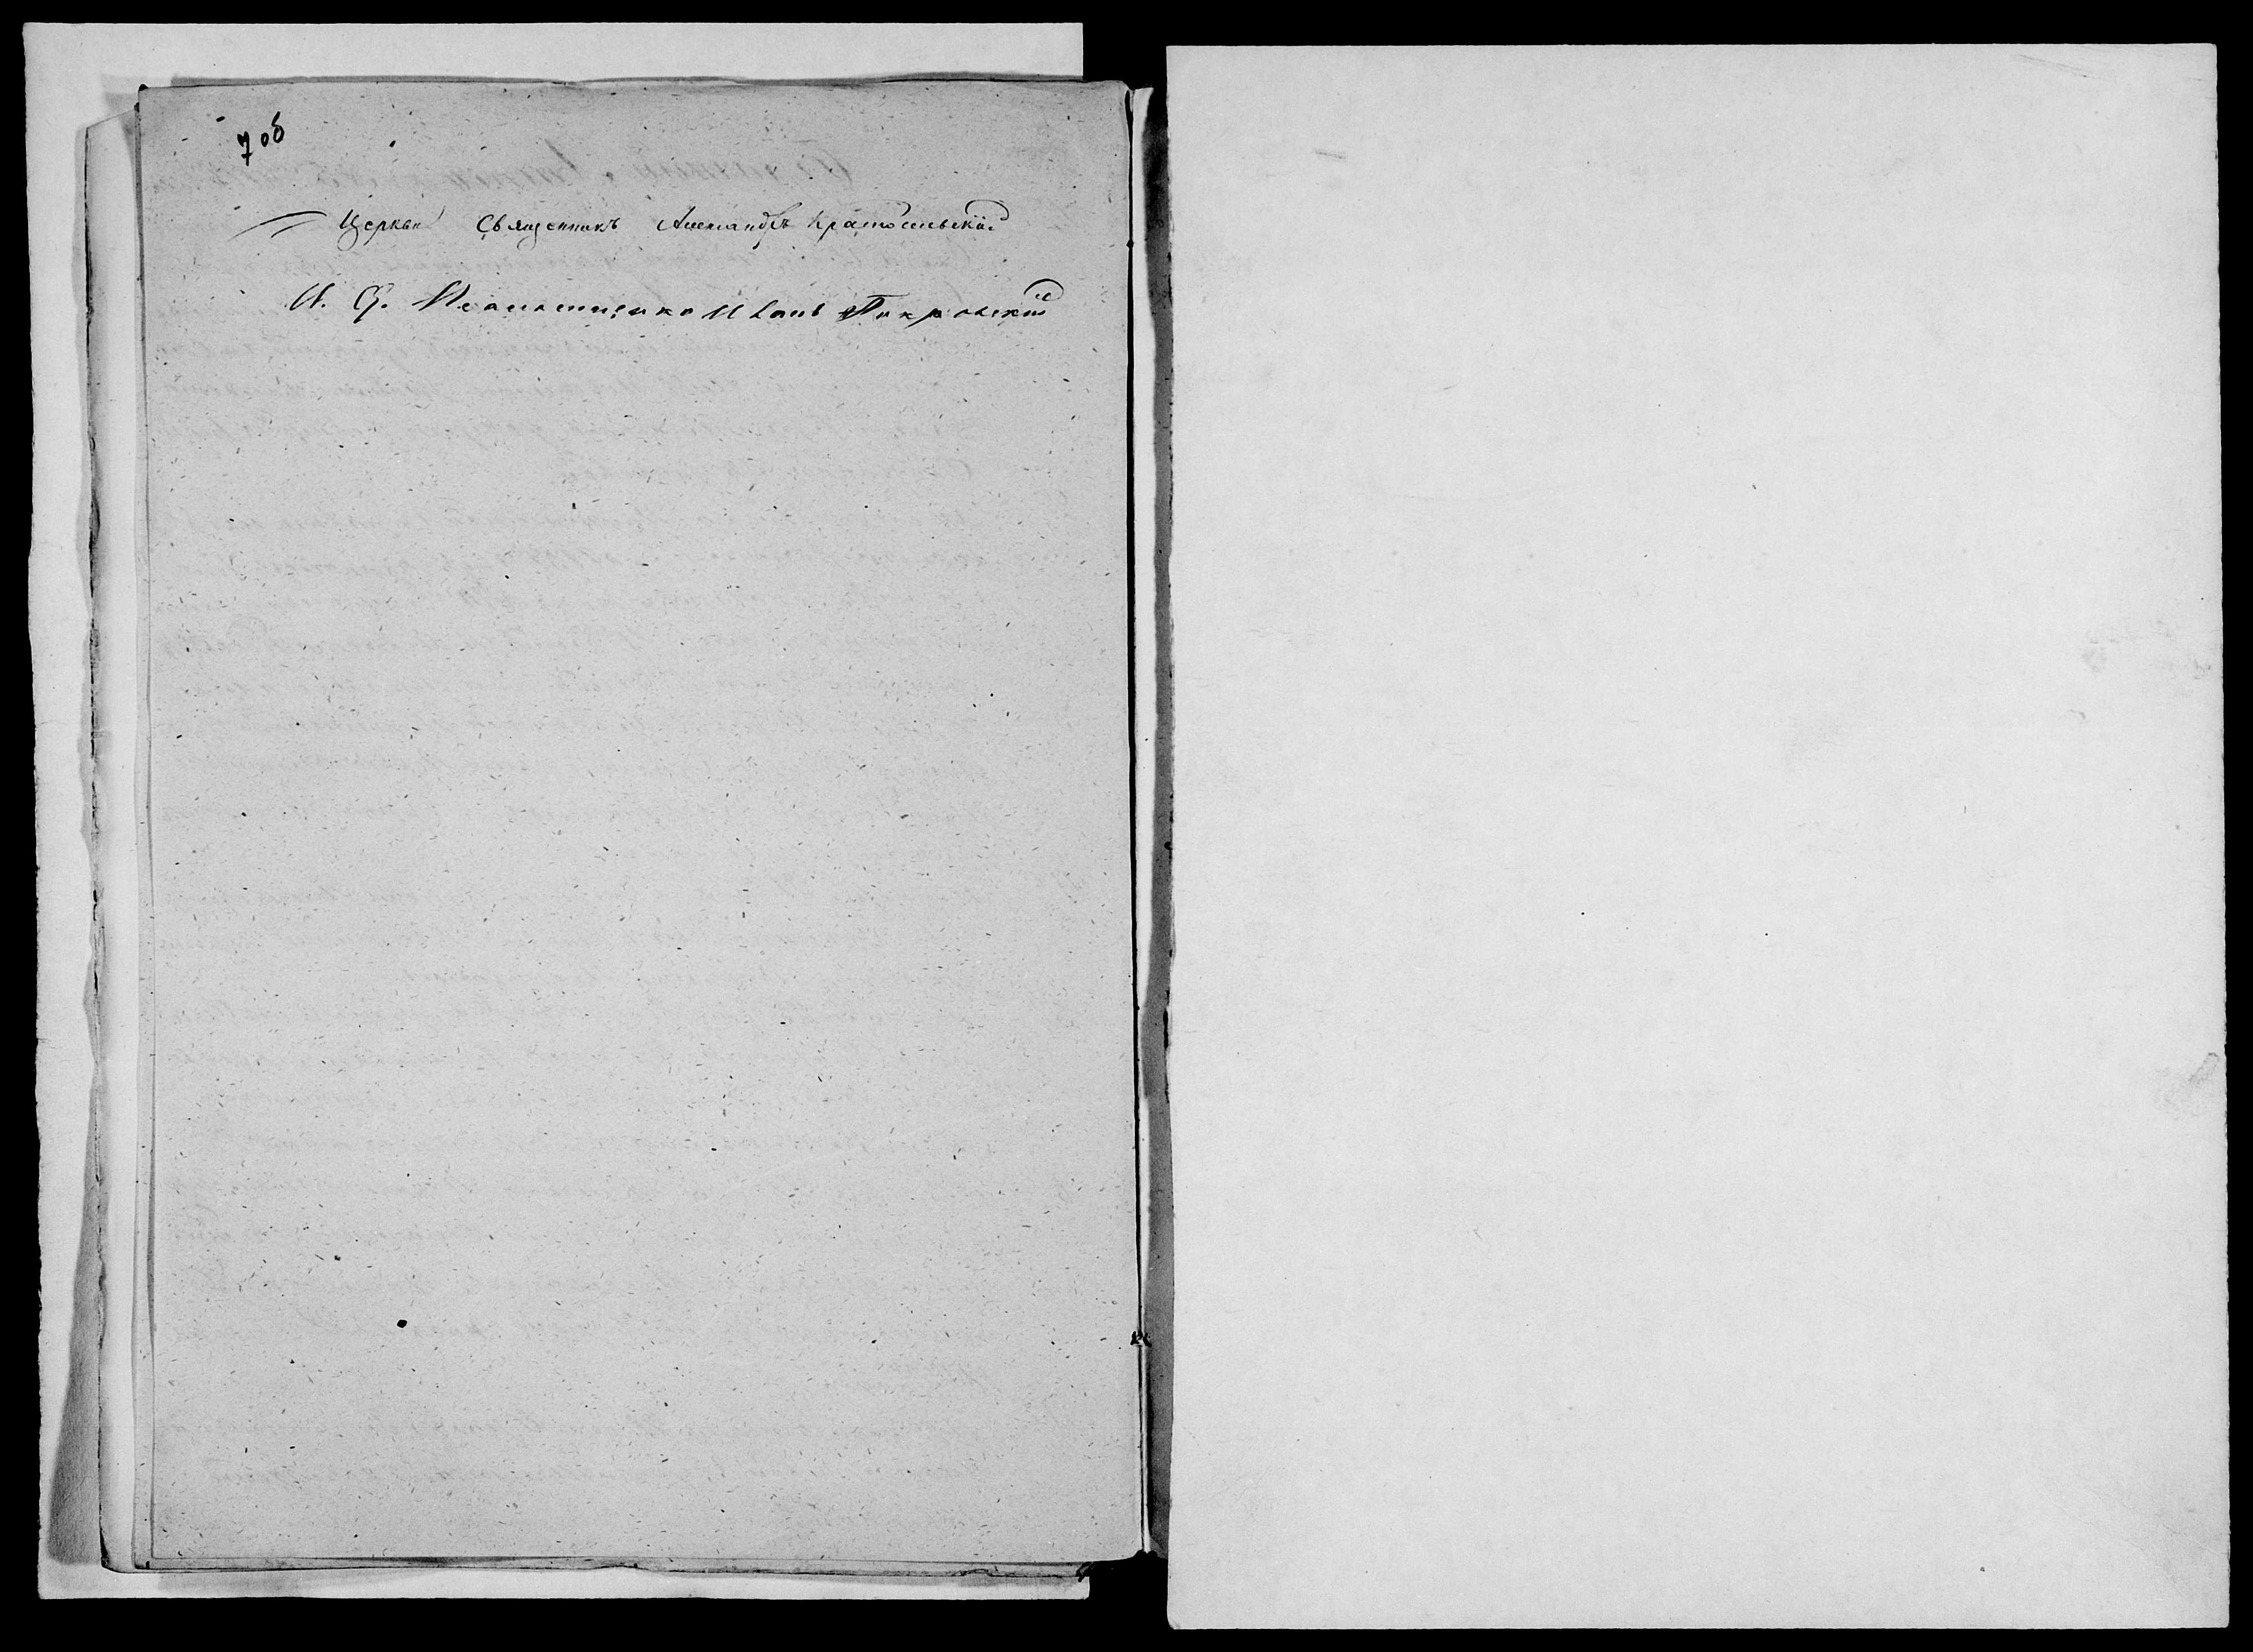 7 об
Церкви Священникъ Александръ Красносельскій
И. Д. Псаломщика Иванъ Покровскій